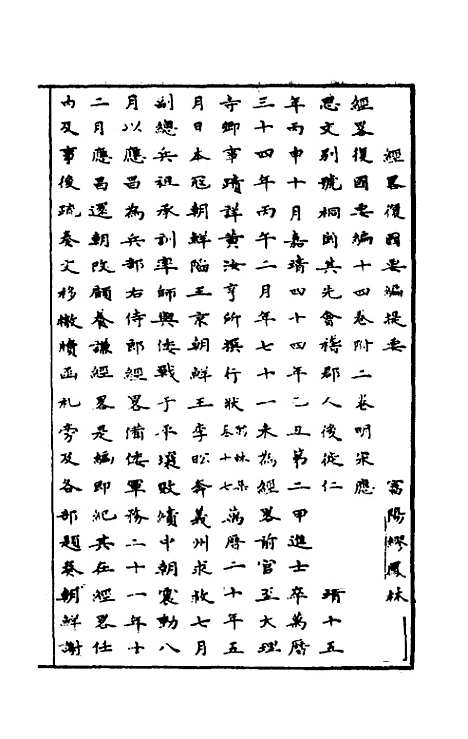 經畧復國要編提要　富陽繆鳳林
經畧復國要編十四卷附二卷明宋應
昌撰應昌字思文別號桐岡其先會稽郡人後從仁
靖十五年丙申十月嘉靖四十四年乙丑第二甲進士卒萬曆
三十四年丙午二月年七十一未為經畧前官至大理
寺卿事蹟詳黃汝亨所撰行狀萬曆二十年五
月日本寇朝鮮陷王京朝鮮王李昖奔義州求救七月
副總兵祖承訓率師與倭戰于平壤敗績中朝震動八
月以應昌為兵部右侍郎經畧備倭軍務二十一年十
二月應昌還朝改顧養謙經畧是編即紀其在經畧任
內及事後疏奏文移檄牘函札旁及各部題奏朝鮮謝